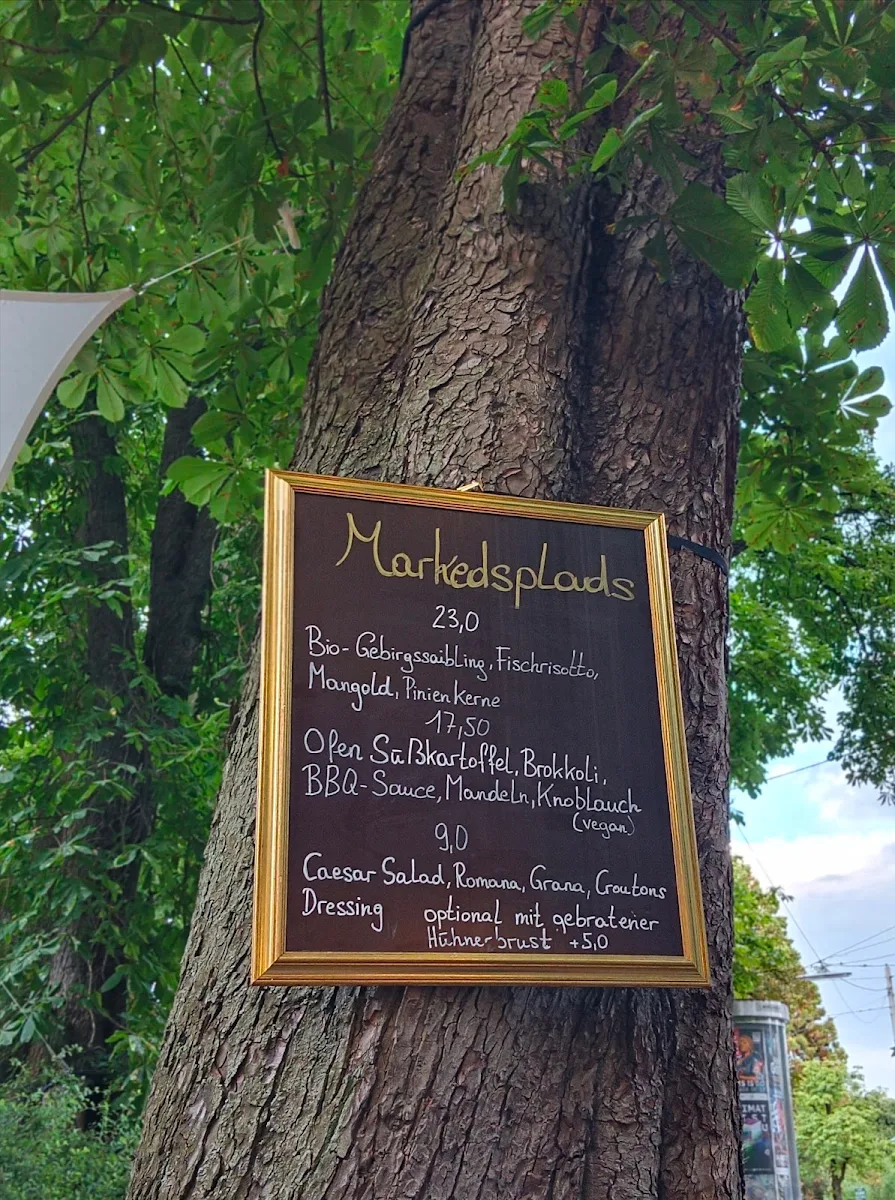 Markedsplads
23,0
Bio-Gebirgssaibling, Fischrisotto,
Mangold, Pinienkerne
17,50
Ofen Süßkartoffel, Brokkoli,
BBQ-Sauce, Mandeln, Knoblauch
(vegan)
9,0
Caesar Salad, Romana, Grana, Croutons
Dressing optional mit gebratener
Hühnerbrust +5,0